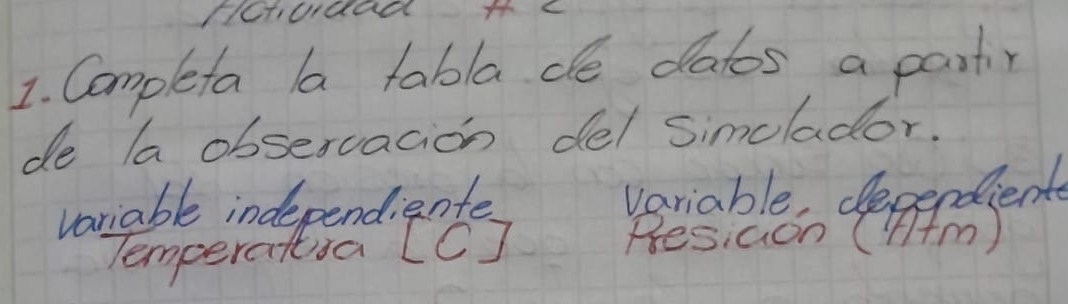 Actividad # 2
1. Completa la tabla de datos a partir
de la observación del simulador.
variable independiente variable dependiente
Temperatura [C] Presición (Atm)